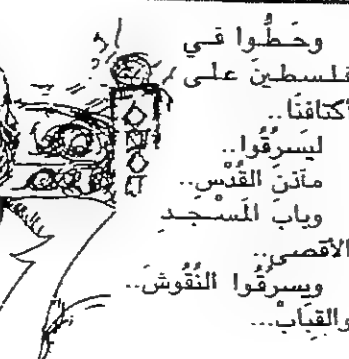 وحَطُّوا في
فلسطينَ على
أكتافنَا..
ليَسرقُوا..
مآذنَ القُدْس..
وبابَ المَسْجد
الأقصى..
ويسرقُوا النُقُوشَ..
والقبَابْ...